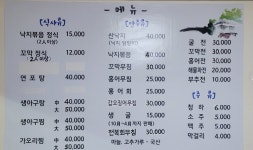 - 메 뉴 -
(식사류)
낙지볶음 정식 15,000
(2人이상)
꼬막 정식 12,000
(2人이상)
연 포 탕 40,000
생아구탕 中 40,000
大 50,000
생아구찜 中 40,000
大 50,000
가오리찜 中 30,000
산낙지
낙지볶음 40,000
꼬막무침 30,000
홍어무침 30,000
홍 어 회
갑오징어무침 30,000
생 굴 15,000
전복회무침 50,000
마늘, 고추가루 - 국산
굴 전 30,000
꼬막전 30,000
홍어전 30,000
해물파전 20,000
부추전 10,000
(주 류)
청 하 6,000
소 주 5,000
맥 주 5,000
막걸리